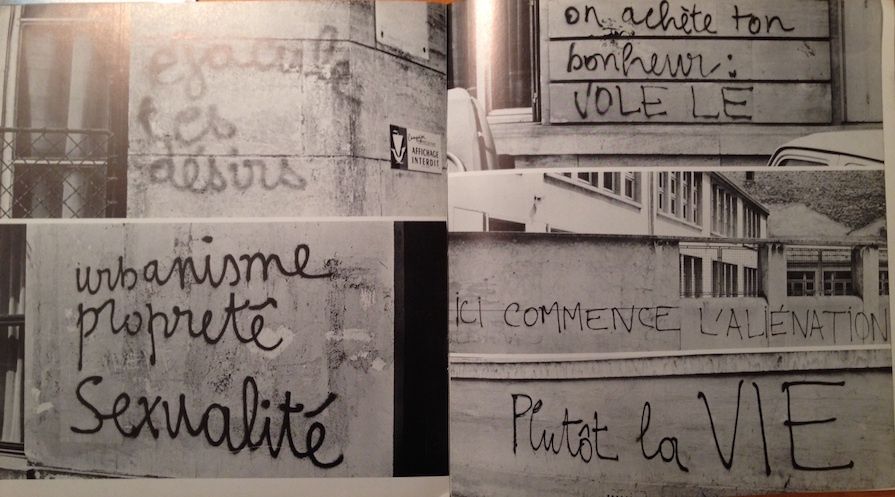 éjacule
tes
désirs
AFFICHAGE
INTERDIT
urbanisme
propreté
Sexualité
on achète ton
bonheur :
VOLE LE
ICI COMMENCE L'ALIÉNATION
Plutôt la VIE